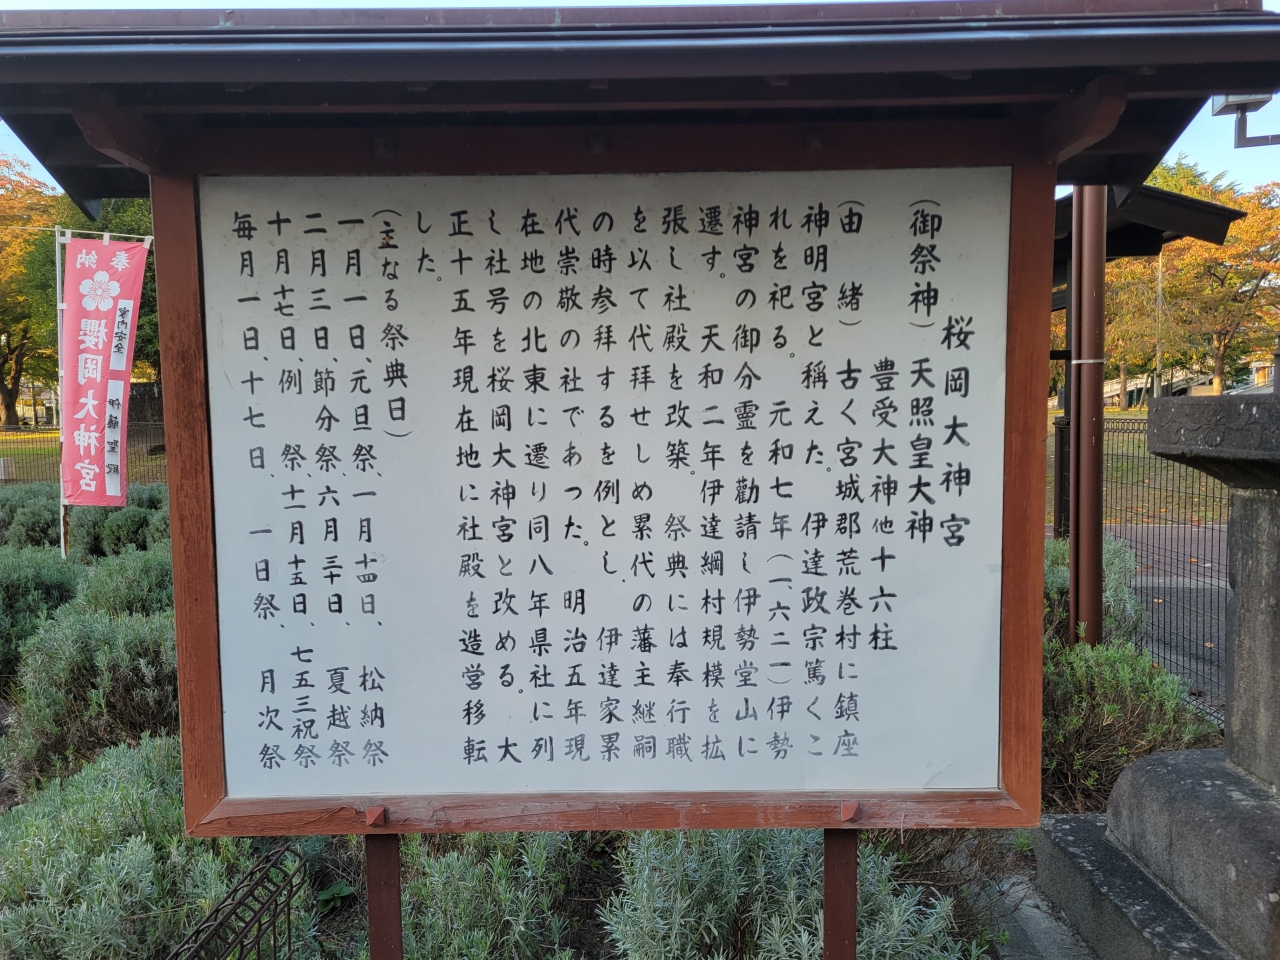 桜岡大神宮
(御祭神)天照皇大神
豊受大神他十六柱
(由　緒)　古く宮城郡荒巻村に鎮座
神明宮と稱えた。伊達政宗篤くこ
れを祀る。元和七年(一、六二一)伊勢
神宮の御分霊を勸請し伊勢堂山に
遷す。　天和二年伊達綱村規模を拡
張し社殿を改築。祭典には奉行職
を以て代拝せしめ累代の藩主継嗣
の時参拝するを例とし、伊達家累
代崇敬の社であった。明治五年現
在地の北東に遷り同八年県社に列
し社号を桜岡大神宮と改める。大
正十五年現在地に社殿を造営移転
した。
(主なる祭典日)
一月一日、元旦祭、一月十四日、松納祭
二月三日、節分祭、六月三十日、夏越祭
十月十七日、例　祭、十一月十五日、七五三祝祭
毎月一日、十七日、一日祭、月次祭
奉納
櫻岡大神宮
家内安全
伊藤聖殿